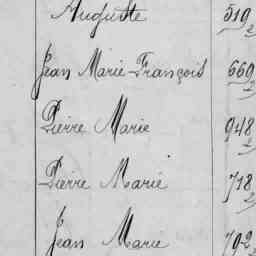 Auguste 519/2
Jean Marie-François 669/2
Pierre Marie 948/2
Pierre Marie 718/2
Jean Marie 702/2